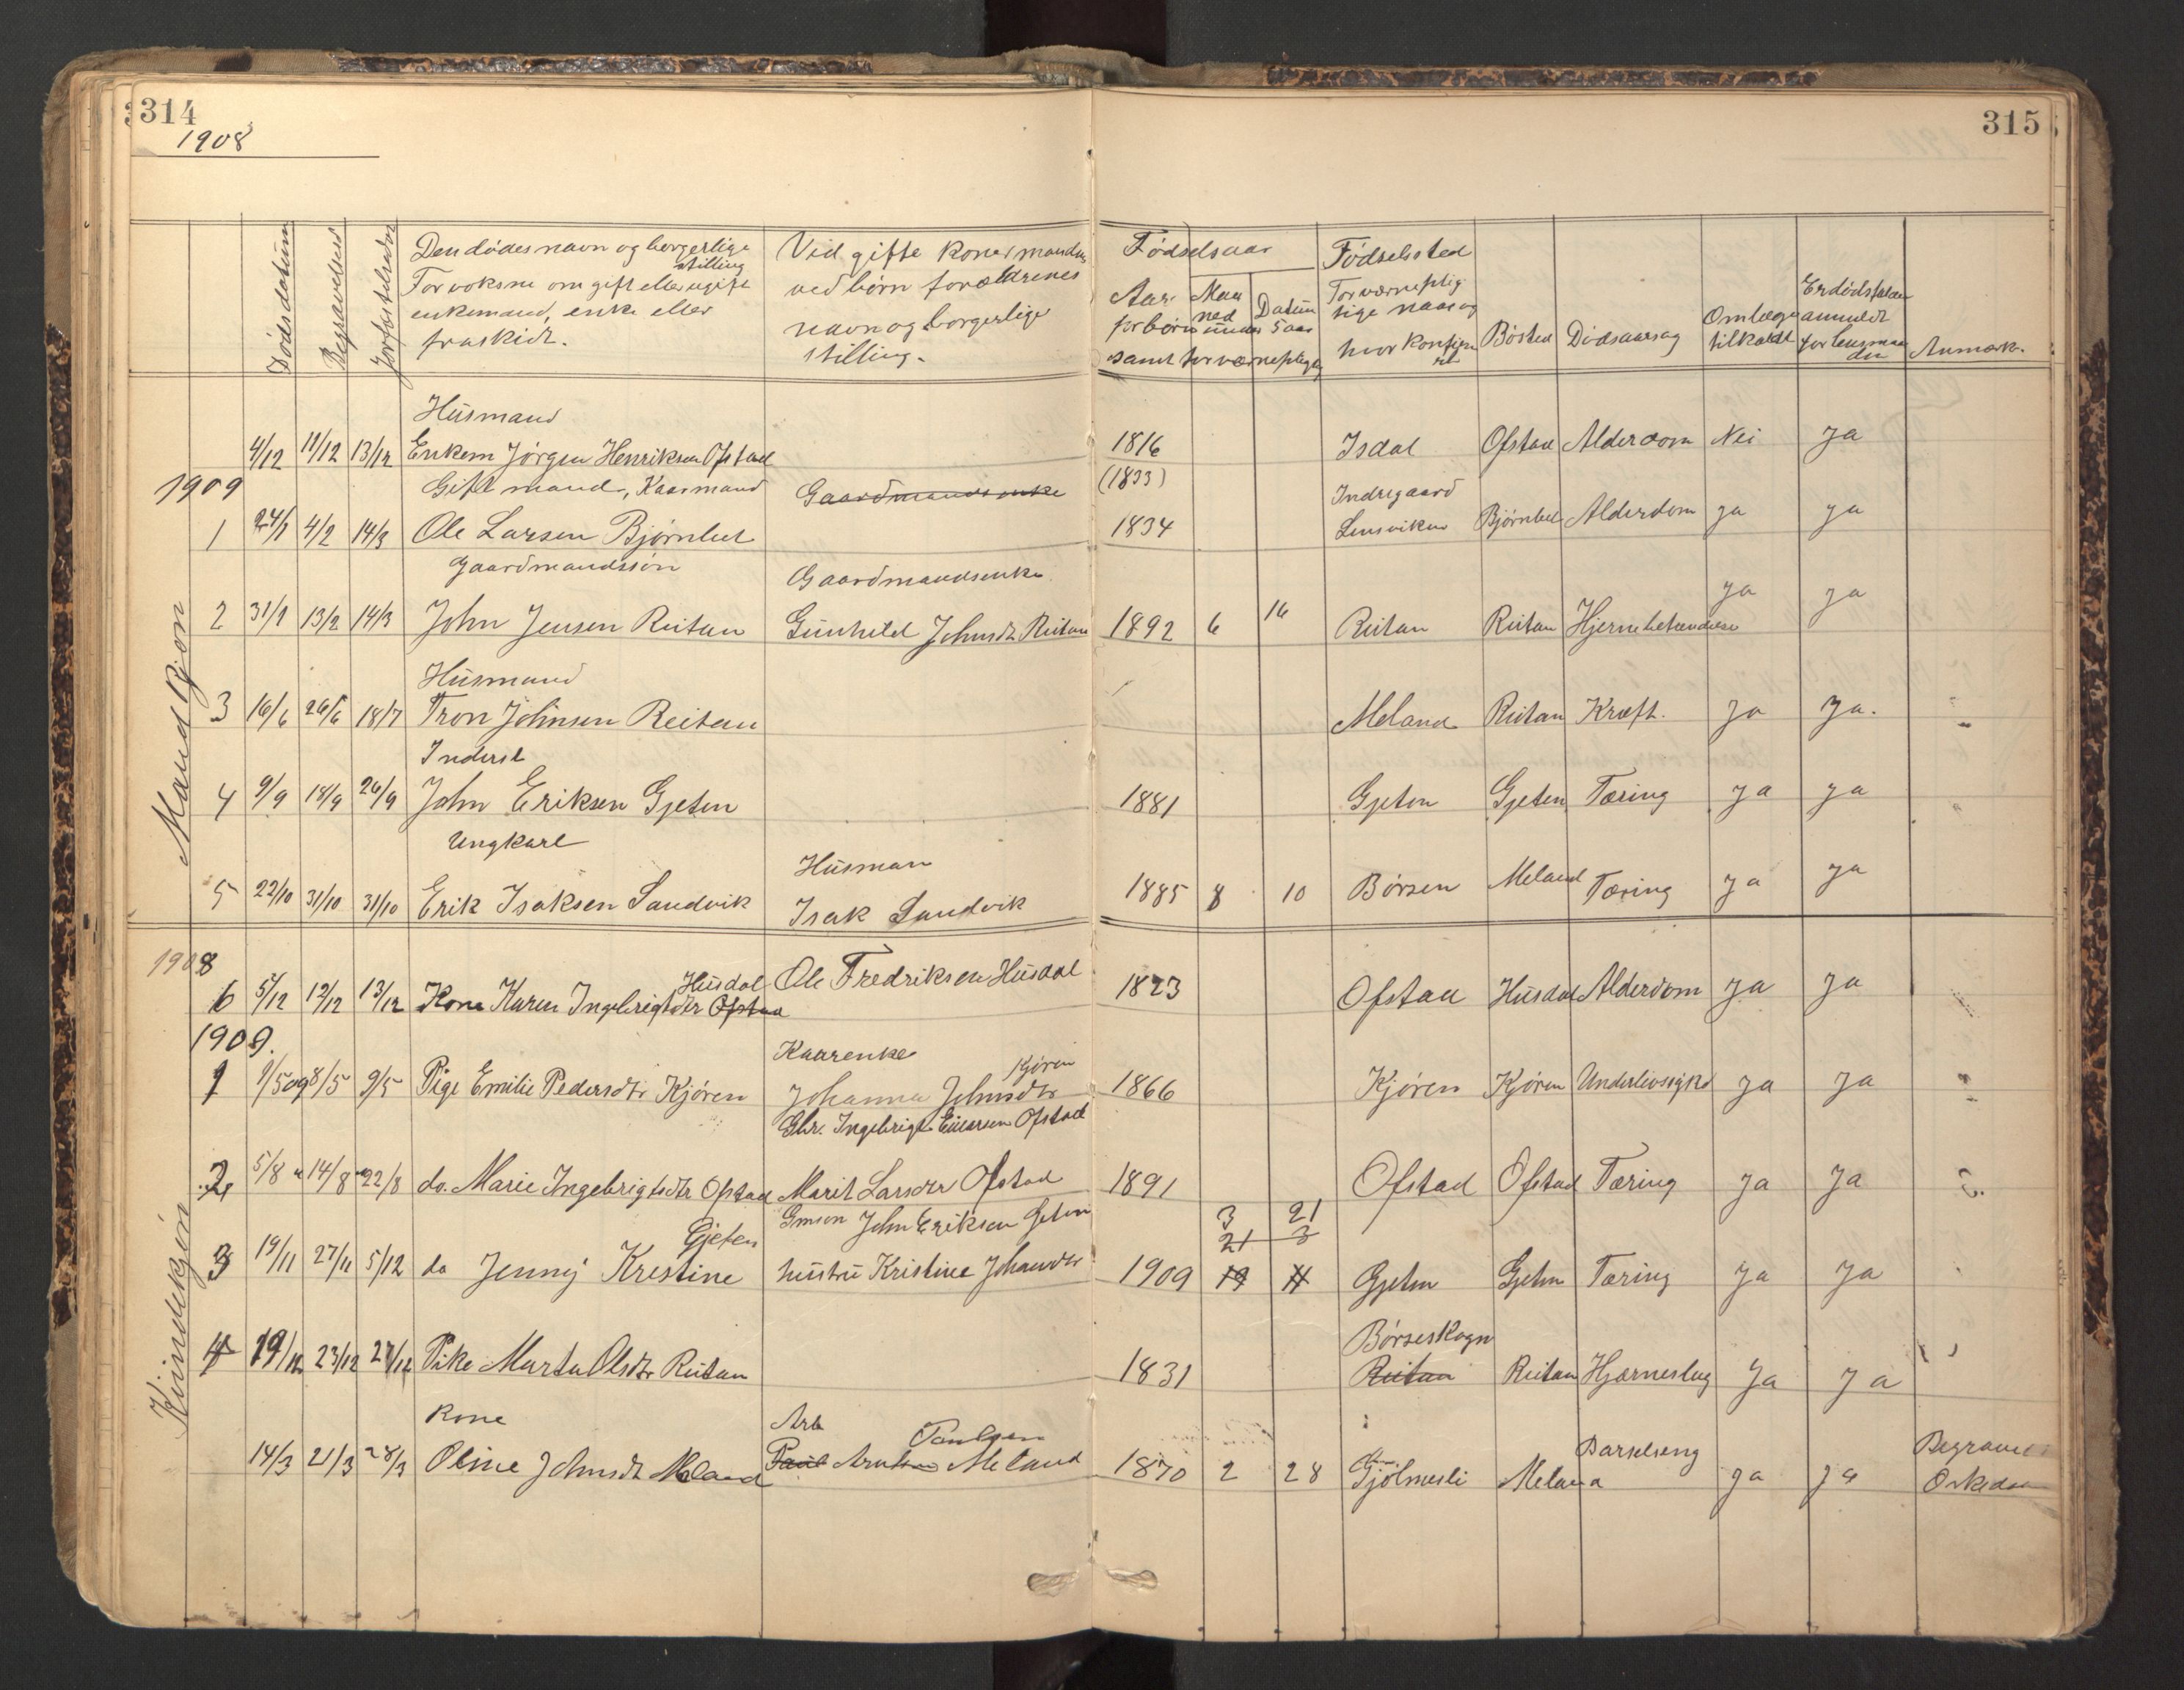 314
1908
315
Dødsdatum Begravelses Jordfæstelsesdm Den dødes navn og borgerlige stilling For voksne om gift eller ugift enkemand, enke eller fraskidt. Vid gifte koner mandens ved børn forældrenes navn og borgerlige stilling.
Fødselsaar Aar. Maaned Datum for børn under 5 aar samt for værnepligtig Fødselssted For værnepligtige naar og hvor konfirm Bósted Dødsaarsag Om læge tilkaldt Er dødsfaldet anmeldt for lensmanden Anmærk.
Mandkjøn
Husmand
4/12 11/12 13/12 Enkem Jørgen Henriksen Ofstad 1816 Isdal Ofstad Alderdom Nei Ja
1909 Gift mand, Kaarmand Gaardmandsenke (1833) Indregaard
1 24/1 4/2 14/3 Ole Larsen Bjørnbet 1834 Lensviken Bjørnbet Alderdom ja ja
Gaardmandssøn Gaardmandsenke
2 31/1 13/2 14/3 John Jensen Reitan Gunhild Johnsdt Reitan 1892 6 16 Reitan Reitan Hjernebetændelse ja ja
Husmand
3 16/6 26/6 18/7 Tron Johnsen Reitan Meland Reitan Kræft. ja ja.
Inderst
4 9/9 18/9 26/9 John Eriksen Gjeten 1881 Gjeten Gjeten Tæring ja ja
Ungkarl Husman
5 22/10 31/10 31/10 Erik Isaksen Sandvik Isak Sandvik 1885 8 10 Børsen Meland Tæring ja ja
Kindekjøn
1908 Husdal
6 5/12 12/12 13/12 Kone Karen Ingebrigtsdtr Ofstad Ole Fredriksen Husdal 1823 Ofstad Husdal Alderdom ja ja
1909. Kaarenke Kjøren
1 1/5 09 8/5 9/5 Pige Emilie Pedersdtr Kjøren Johanna Johnsdtr 1866 Kjøren Kjøren Underlivssygd ja ja
Gbr. Ingebrigt Einarsen Ofstad
2 5/8 " 14/8 " 22/8 do. Marie Ingebrigtsdtr Ofstad Marit Larsdtr Ofstad 1891 Ofstad Ofstad Tæring ja ja
Gjeten Gmson John Eriksen Gjeten 3 21
21 3
3 19/11 27/11 5/12 do Jenny Kristine hustru Kristine Johansdtr 1909 19 11 Gjeten Gjeten Tæring ja ja
Børseskogn
4 19/12 23/12 27/12 Pike Marta Olsdtr Reitan 1831 Reitan Reitan Hjerneslag Ja Ja
Kone Arb Paulsen Barselseng Begravet
14/3 21/3 28/3 Oline Johnsdt Meland Paul Meland 1870 2 28 Gjølmesli Meland ja ja Orkedalen